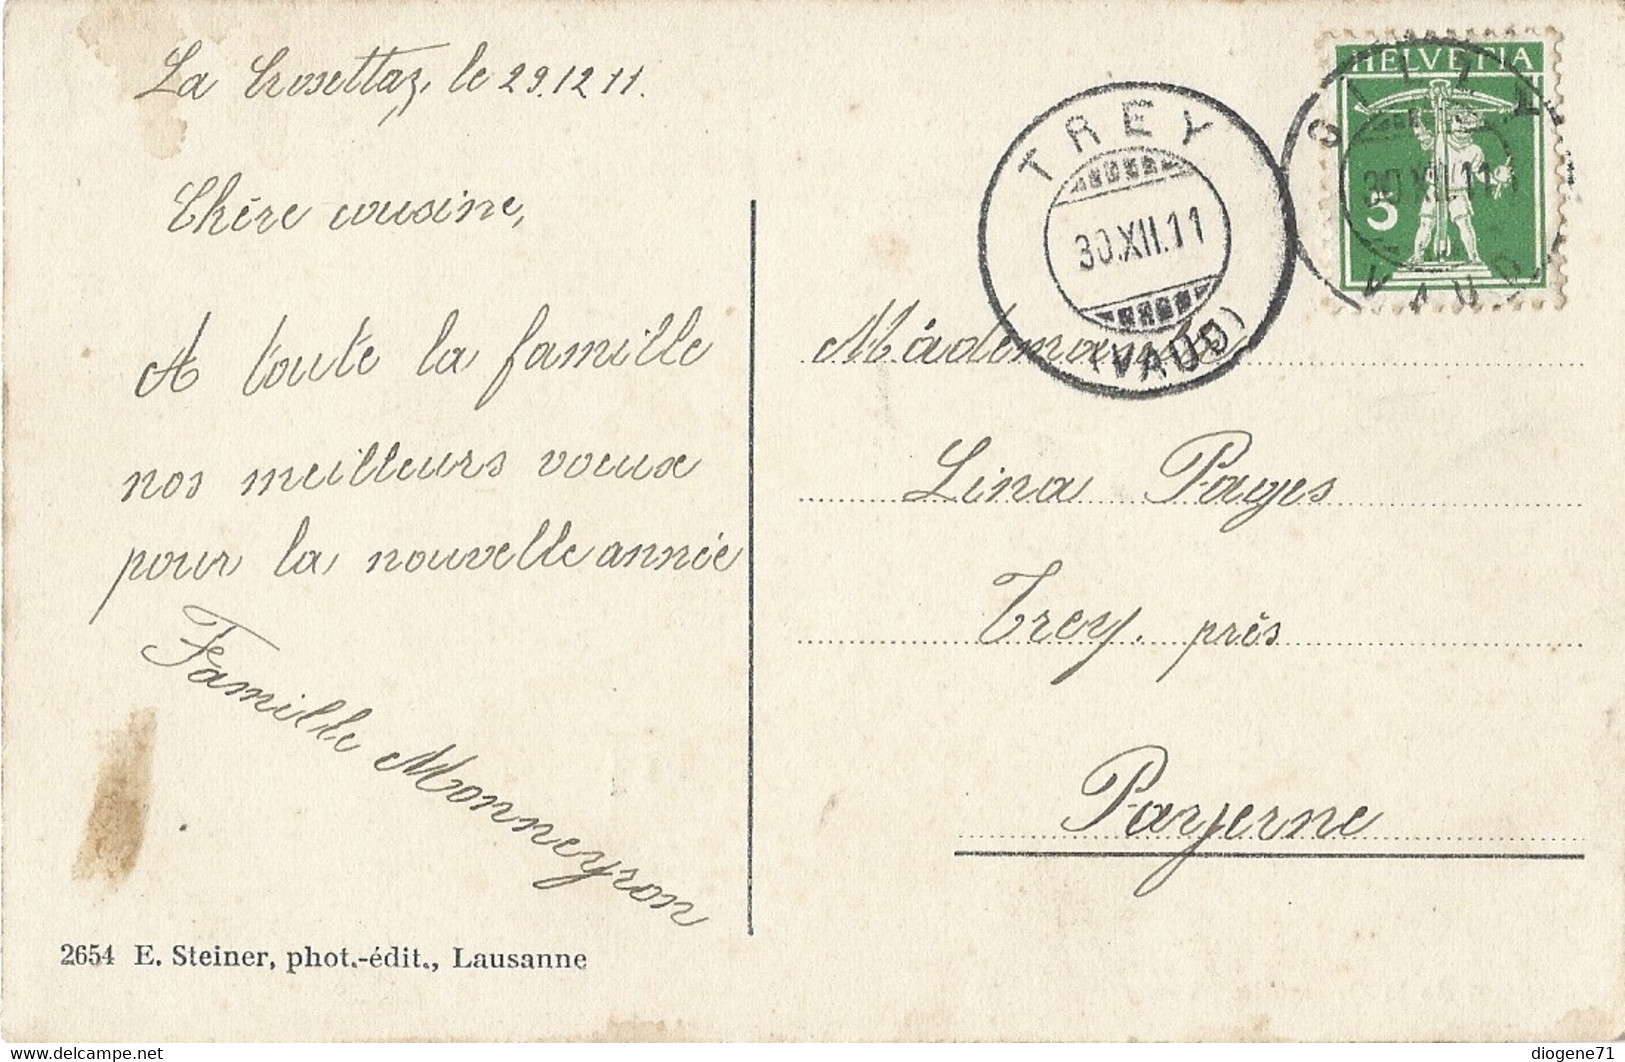 La Crosettaz, le 29.12.11.
Chère cousine,
A toute la famille
nos meilleurs voeux
pour la nouvelle année
Famille Monneyron
2654 E. Steiner, phot.-édit., Lausanne
HELVETIA
5
30.XII.11
TREY
30.XII.11
(VAUD)
Mademoiselle
Lina Pages
Trey. près
Payerne
diogene71